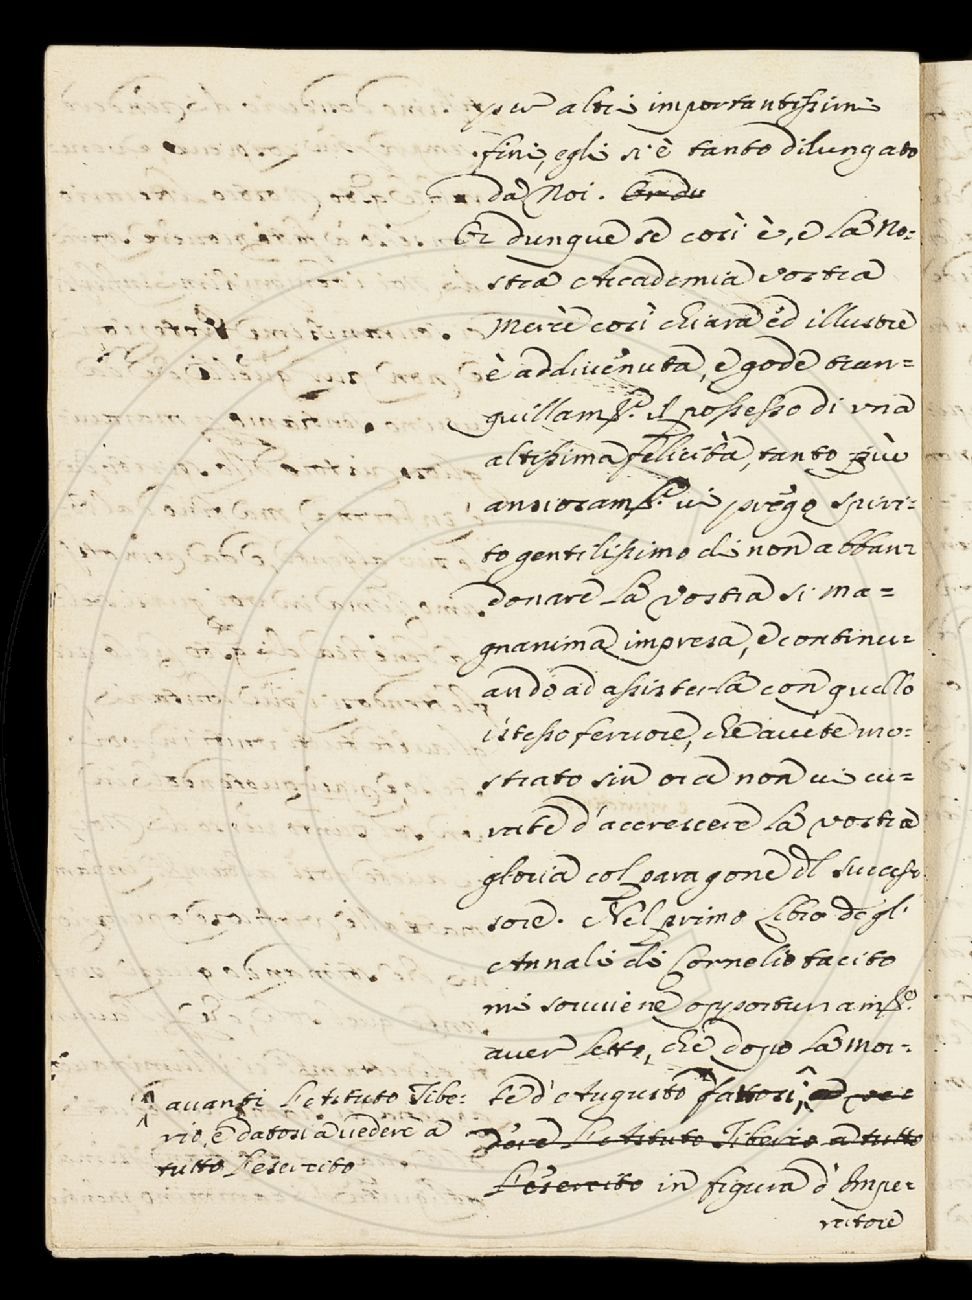 per altri importantissimi
fini, egli si è tanto dilungato
da Noi.
Or dunque se così è, e la No=
stra Accademia vostra
Mercè così chiara ed illustre
è addivenuta, e gode tran=
quillam.te il possesso di una
altissima felicità, tanto più
ansiosam.te vi prego spiri=
to gentilissimo di non abban=
donare la vostra sì ma=
gnanima impresa, e continu=
ando ad assisterla con quello
istesso fervore, che avete mo=
strato sin ora non vi cu=
rate d'accrescere la vostra
gloria col paragone del succes=
sore. Nel primo libro degl'
Annali di Cornelio tacito
mi sovviene opportunam.te
aver letto, che dopo la mor=
te d'Augusto fattosi,
dere Letituto Tiberio a tutto
L'esercito in figura d'Impe=
ratore
avanti Letituto Tibe=
rio, e datosi a vedere a
tutto L'esercito